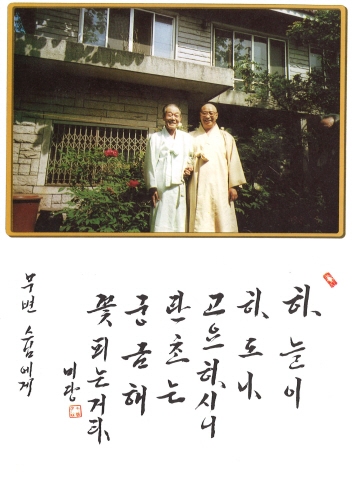 하늘이
하도나
고요하시니
란초는
궁금해
꽃 피는거다.
미당
무변 스님에게